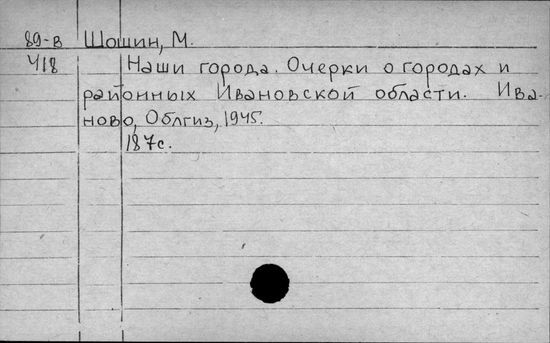 89-в Шошин, М.
418 Наши города. Очерки о городах и
районных Ивановской области. Ива-
ново, Облгиз, 1945.
187с.